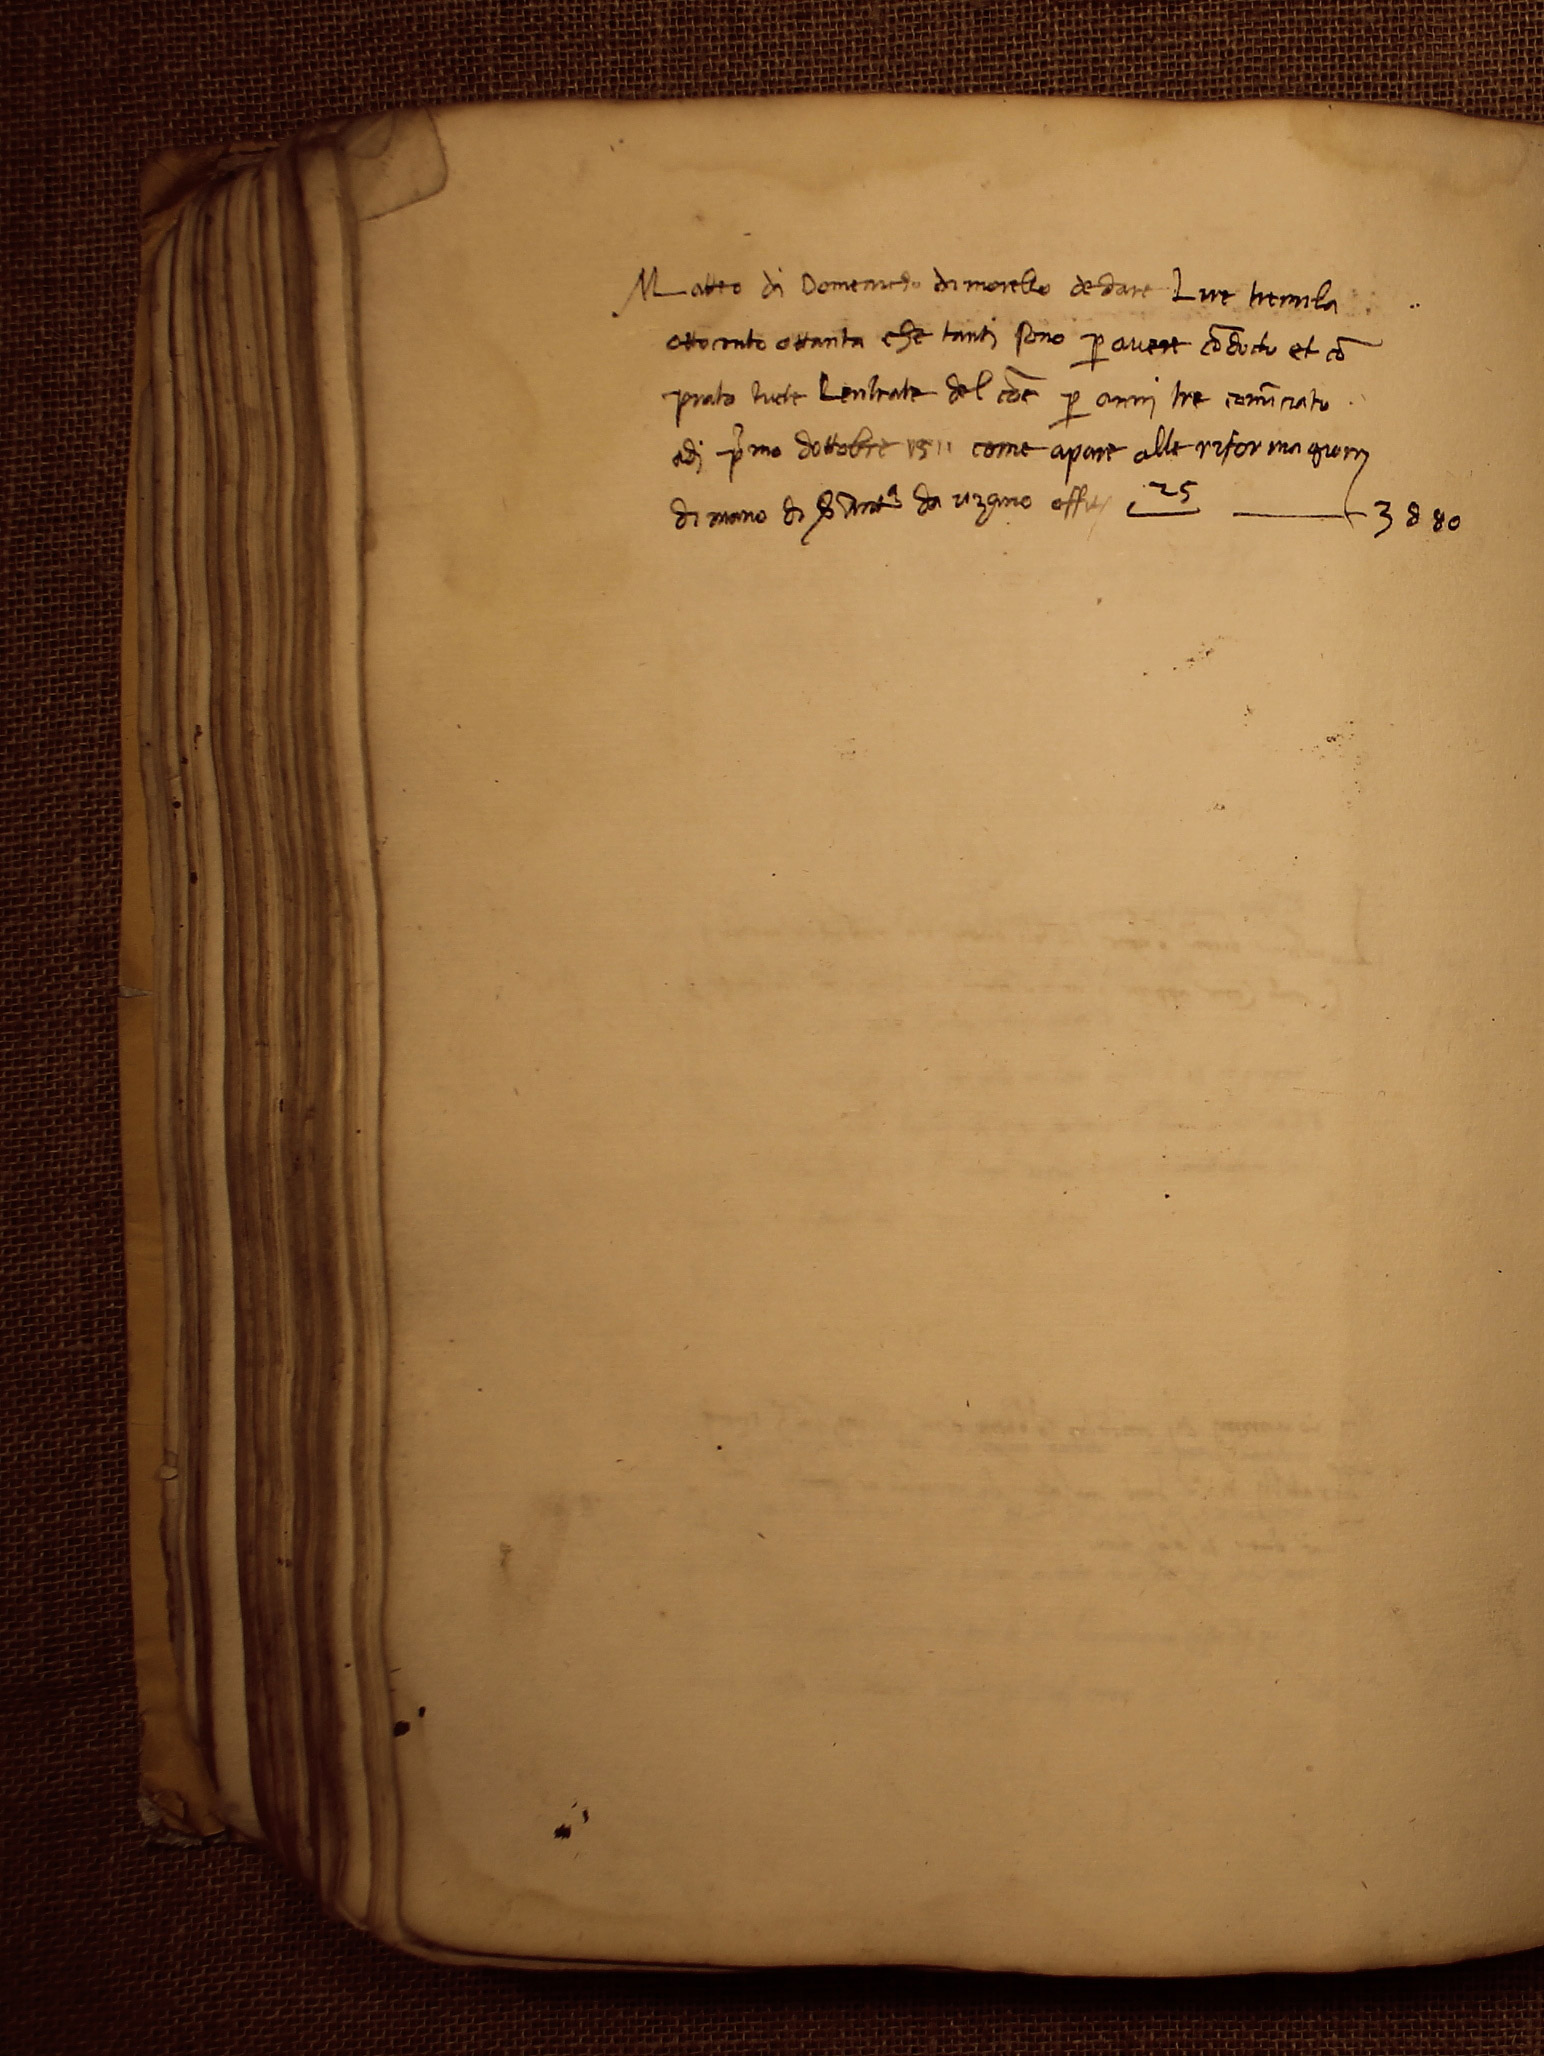 Matteo di Domenicho di morello de dare Lire tremila
ottocento ottanta che tanti sono p avere cōdocto et cō
prato tucte Lentrate del cōe p anni tre comĩciato
adi pᵒmo dottobre 1511 come apare alle riformagioni
di mano di Antᵒ da
25
3880